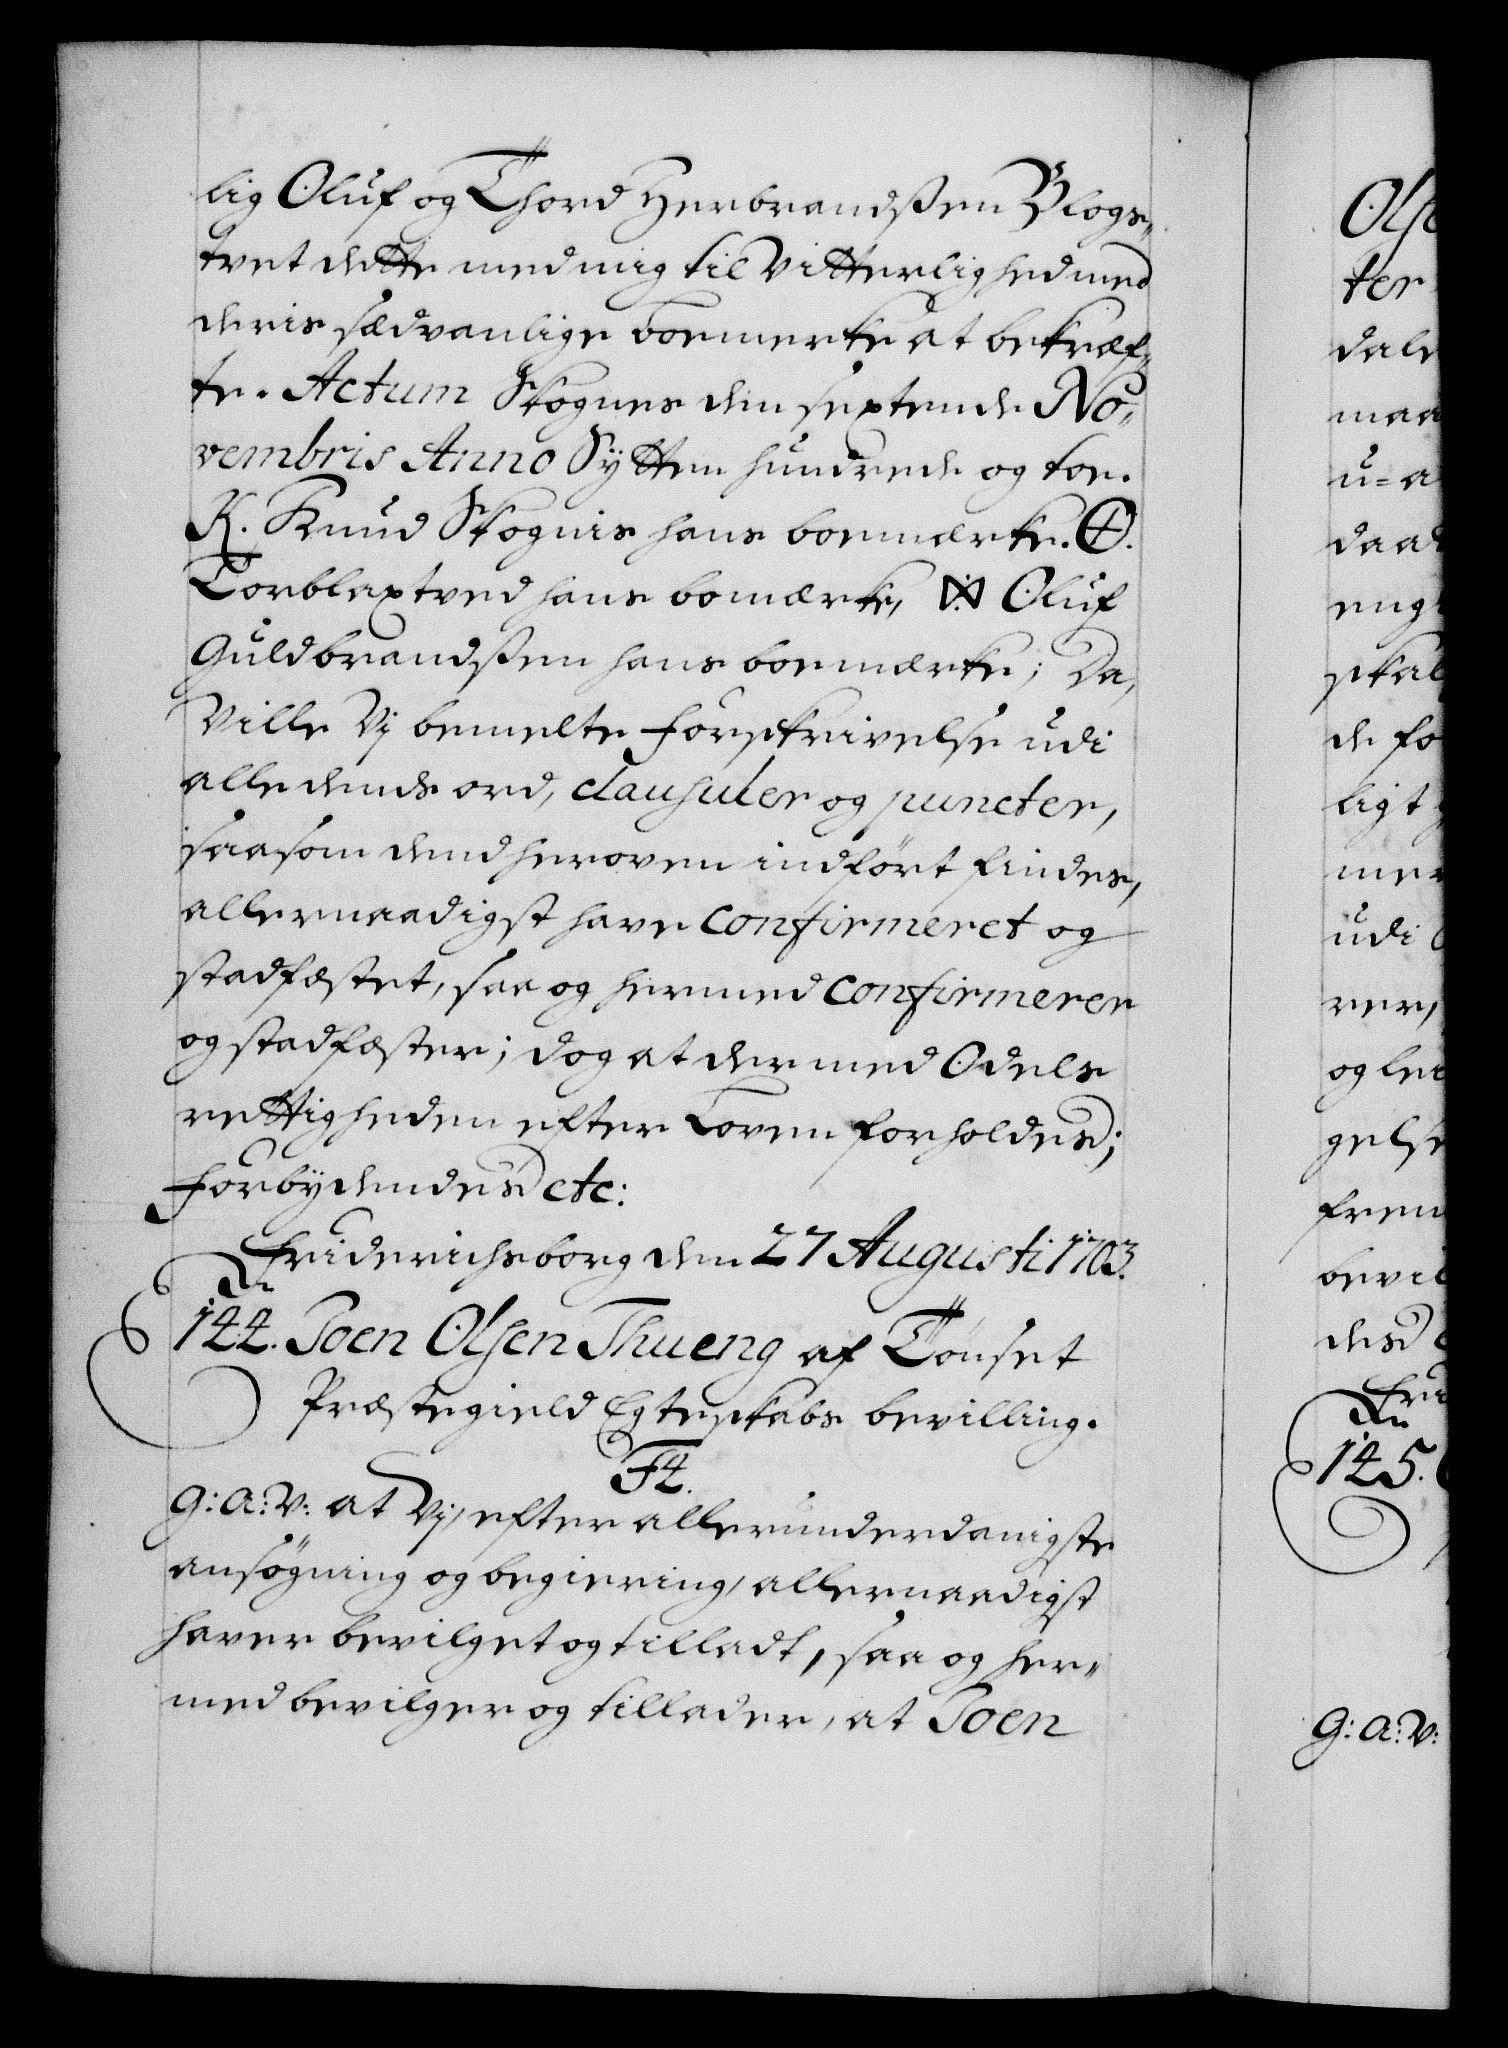 lig Oluf og Thord Herbrandssen Blogs,,
tvet dette med mig til Vitterlighed med
deris sædvanlige boemerke at bekræf,,
te. Actum Skognes den sextende No,,
vembris Anno Sytten hundrede og toe.
K. Knud Skognis hans boemærke.
Torblaxtved hans bomærke, Oluf
Guldbrandssen hans boemærke; Da,
Ville Vj bemelte Forskrivelse udi
alle dends ord, clausuler og puncter,
saasom dend heroven indført findes,
allernaadigst have confirmeret og
stadfæstet, saa og hermed confirmerer
og stadfæster; dog at dermed Odels
rettigheden efter Loven forholdes;
Forbydendes etc:
Friderichsborg den 27 Augusti 1703.
144. Joen Olsen Thueng af Tønset
Præstegield Egteskabs bevilling.
F4.
G: A: V: at Vj, efter allerunderdanigste
ansøgning og begiering, allernaadigst
haver bevilget og tilladt, saa og her,,
med bevilger og tillader, at Joen
Olse
ter
dale
maa
u=a
daad
eng
skal
de fo
ligt
mer
udi
rer,
og lei
gelse
frem
bevil
des
Fri
145.
G: A: V: